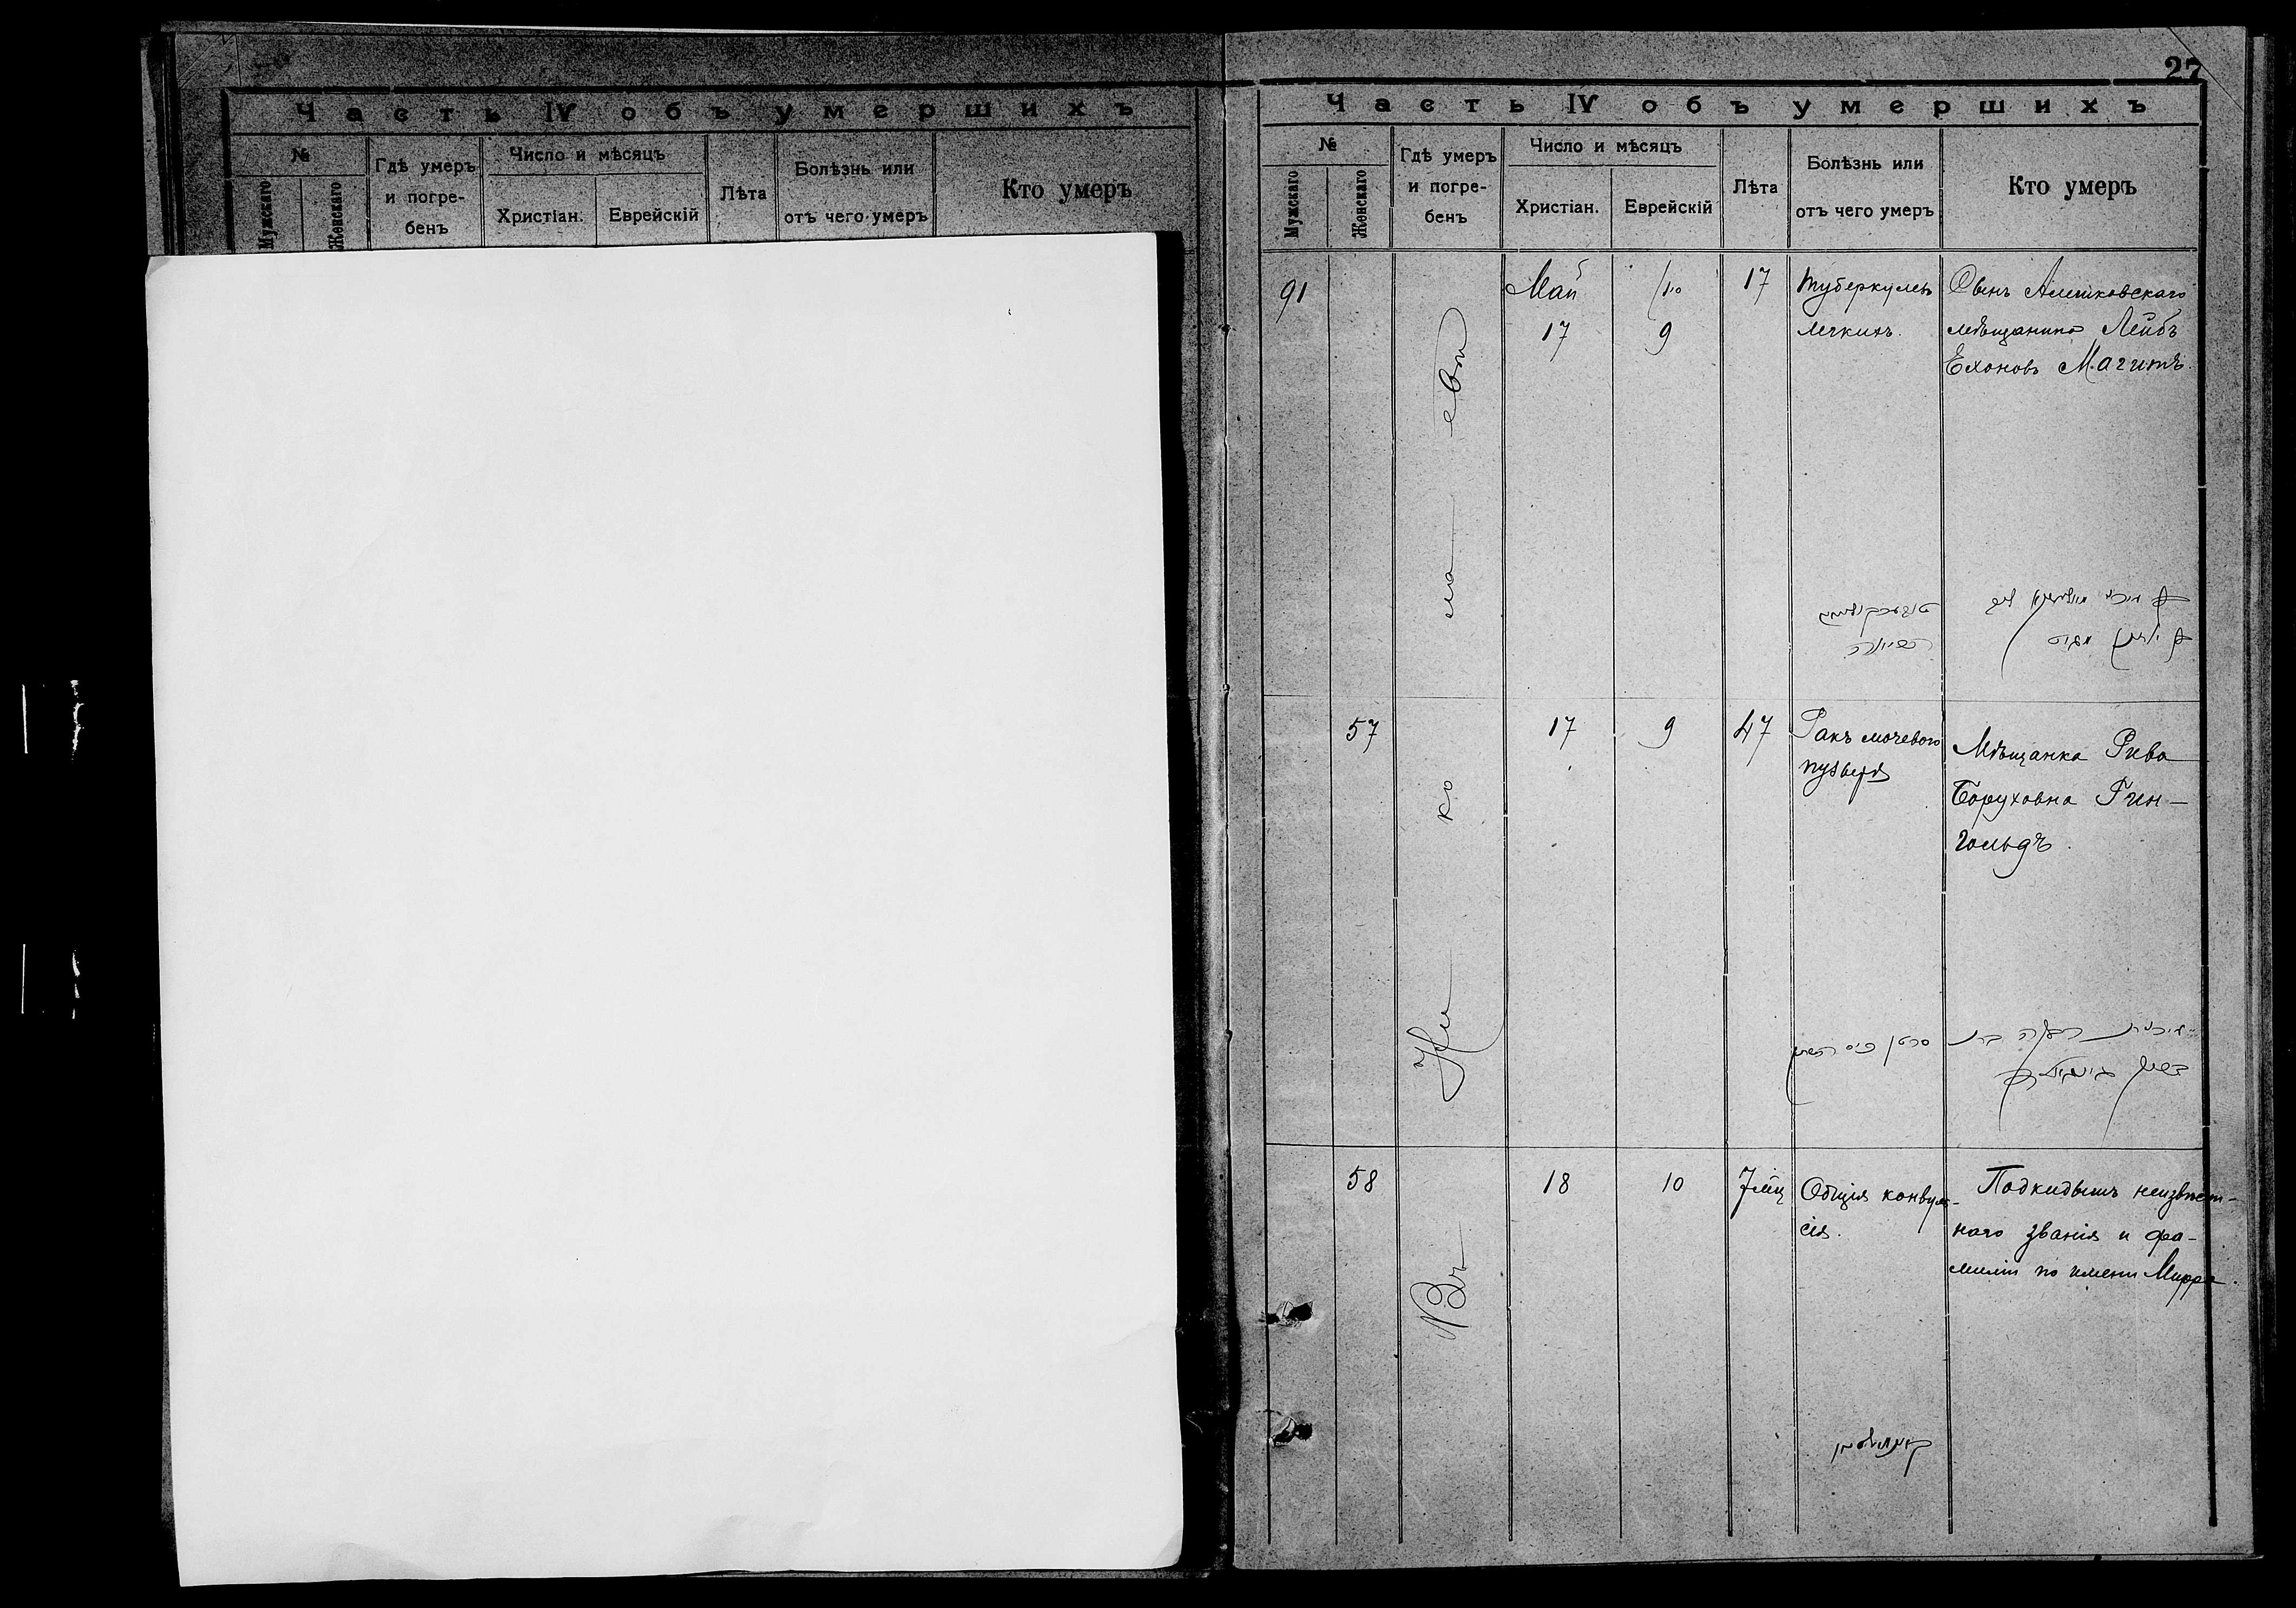 Часть IV объ умершихъ
№
Мужскаго
Женскаго
Гдѣ умеръ
и погре-
бенъ
Число и мѣсяцъ
Христіан.
Еврейскій
Лѣта
Болѣзнь или
отъ чего умеръ
Кто умеръ
27
Часть IV объ умершихъ
№
Мужскаго
Женскаго
Гдѣ умеръ
и погре-
бенъ
Число и мѣсяцъ
Христіан.
Еврейскій
Лѣта
Болѣзнь или
отъ чего умеръ
Кто умеръ
Въ Ни ко ла евѣ
91
Май
17
9
17
Туберкулезъ
легкихъ.
Сынъ Алешковскаго
мѣщанина Лейбъ
Ехоновъ Магитъ.
57
17
9
47
Ракъ мочевого
пузыря
Мѣщанка Рива
Боруховна Рин-
гольдъ.
סרטן כיס השתן
58
18
10
7 мѣц
Общія конвуль-
сія.
Подкидышъ неизвѣст-
наго званія и фа-
миліи по имени Мирра.